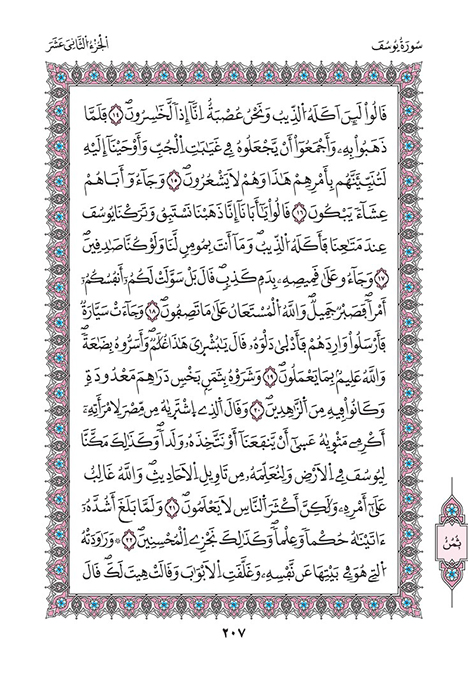 سُورَةُ يُوسُفَ
اَلْجُزْءُ الثَّانِي عَشَرَ
قَالُواْ لَئِنَ اَكَلَهُ الذِّيبُ وَنَحْنُ عُصْبَةٌ اِنَّآ إِذاٗ لَّخَٰسِرُونَۖ ١٤ فَلَمَّا
ذَهَبُواْ بِهِۦ وَأَجْمَعُوٓاْ أَنْ يَّجْعَلُوهُ فِے غَيَٰبَٰتِ اِ۬لْجُبِّ وَأَوْحَيْنَآ إِلَيْهِ
لَتُنَبِّئَنَّهُم بِأَمْرِهِمْ هَٰذَا وَهُمْ لَا يَشْعُرُونَۖ ١٥ وَجَآءُوٓ أَبَاهُمْ
عِشَآءٗ يَبْكُونَۖ ١٦ قَالُواْ يَٰٓأَبَانَآ إِنَّا ذَهَبْنَا نَسْتَبِقُ وَتَرَكْنَا يُوسُفَ
عِندَ مَتَٰعِنَا فَأَكَلَهُ اُ۬لذِّيبُۖ وَمَآ أَنتَ بِمُومِنٖ لَّنَا وَلَوْ كُنَّا صَٰدِقِينَۖ
١٧ وَجَآءُو عَلَىٰ قَمِيصِهِۦ بِدَمٖ كَذِبٖۖ قَالَ بَلْ سَوَّلَتْ لَكُمُۥٓ أَنفُسُكُمُۥٓ
أَمْراٗۖ فَصَبْرٞ جَمِيلٞۖ وَاللَّهُ اُ۬لْمُسْتَعَانُ عَلَىٰ مَا تَصِفُونَۖ ١٨ وَجَآءَتْ سَيَّارَةٞ
فَأَرْسَلُواْ وَارِدَهُمْ فَأَدْلَىٰ دَلْوَهُۥۖ قَالَ يَٰبُشْرَٰيَ هَٰذَا غُلَٰمٞۖ وَأَسَرُّوهُ بِضَٰعَةٗۖ
وَاللَّهُ عَلِيمُۢ بِمَا يَعْمَلُونَۖ ١٩ وَشَرَوْهُ بِثَمَنِۢ بَخْسٖ دَرَٰهِمَ مَعْدُودَةٖ
وَكَانُواْ فِيهِ مِنَ اَ۬لزَّٰهِدِينَۖ ٢٠ وَقَالَ اَ۬لذِے اِ۪شْتَر۪يٰهُ مِن مِّصْرَ لِامْرَأَتِهِۦٓ
أَكْرِمِے مَثْو۪يٰهُ عَسَىٰٓ أَنْ يَّنفَعَنَآ أَوْ نَتَّخِذَهُۥ وَلَداٗۖ وَكَذَٰلِكَ مَكَّنَّا
لِيُوسُفَ فِے اِ۬لَارْضِ وَلِنُعَلِّمَهُۥ مِن تَاوِيلِ اِ۬لَاحَادِيثِۖ وَاللَّهُ غَالِبٌ
عَلَىٰٓ أَمْرِهِۦ وَلَٰكِنَّ أَكْثَرَ اَ۬لنَّاسِ لَا يَعْلَمُونَۖ ٢١ وَلَمَّا بَلَغَ أَشُدَّهُۥٓ
ءَاتَيْنَٰهُ حُكْماٗ وَعِلْماٗۖ وَكَذَٰلِكَ نَجْزِے اِ۬لْمُحْسِنِينَۖ ٢٢ وَرَٰوَدَتْهُ
اُ۬لتِے هُوَ فِے بَيْتِهَا عَن نَّفْسِهِۦ وَغَلَّقَتِ اِ۬لَابْوَٰبَ وَقَالَتْ هِيتَ لَكَۖ قَالَ
ثُمُنُ
٢٠٧